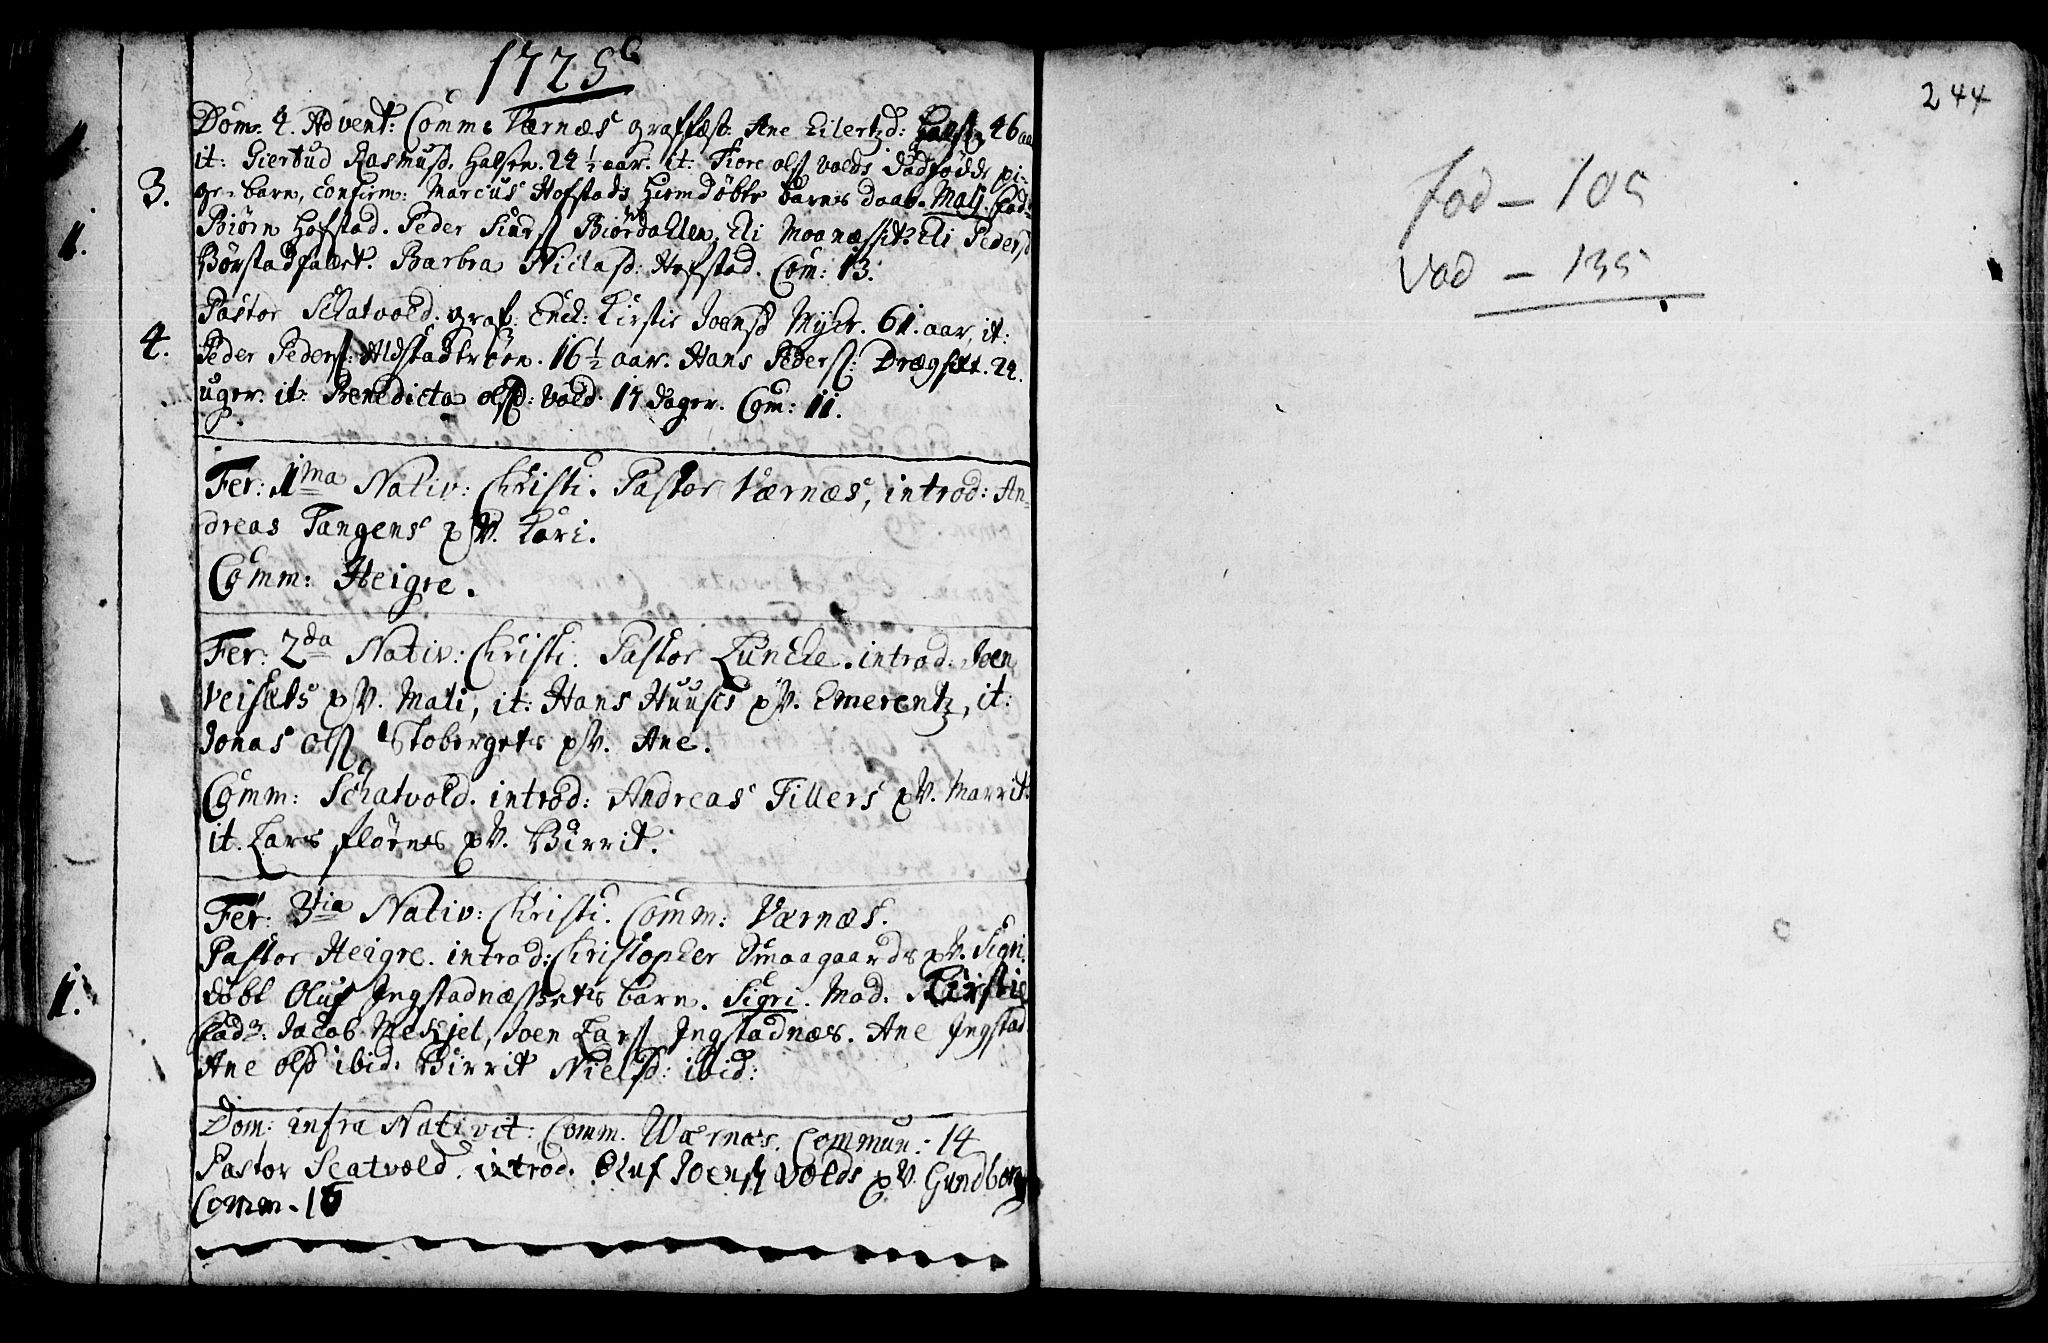 1725
Dom. 4. Advent: Comm: Værnæs graffæst. Ane Eilertzd: 46 aar
it: Giertrud Rasmusd. Halsen. 24 1/2 aar. it. Tiore ols Volds dødfødde pi-
3. ge-barn, Confirm: Marcus Hofstads hiemdøbte barns daab. Mali. Fad:
1. Biørn Hofstad. Peder Siurs Biørdahlen, Eli Moanæssit. Eli Peders
Børstadfaldet. Barbra Niclasd: Hofstad. Com: 13.
Pastor Schatvold. graf: Enck: Kirstie Joensd Myhr. 61. aar, it:
4. Peder Peders: Aldstadtrøen. 16 1/2 aar. Hans Peders: Drægset. 24.
uger. it: Benedicta olsd: Vold. 17 dager. Com: 11.
Fer: 1ma Nativ: Christi. Pastor Værnæs, introd: An-
dreas Tangens p V. Kari.
Comm: Heigre.
Fer: 2da Nativ: Christi. Pastor Luncke. introd: Joen
Veisets p V. Mali, it: Hans Huuses p V. Emerentz, it:
Jonas ols Stobergets p V. Ane.
Comm: Schatvold. introd: Andreas Tillers p V. Marrit.
it. Lars fløenes p V. Birrit.
Fer: 3tia Nativ: Christi. Comm: Værnæs.
Pastor Heigre. introd: Christopher Smaagaards p V. Sigri.
1. døbt Oluf Ingstadnæssets barn. Sigri. Mod. Kirstie
Fad: Jacob Meksjel, Joen Lars Ingstadnæs. Ane Ingstad
Ane olsd ibid. Birrit Nielsd: ibid:
Dom: infra Nativit: Comm. Wærnæs. Commun: 14
Pastor Scatvold. introd. Oluf Joens Volds p V. Gundborg
Comm. 16
244
fod - 105
Vod - 135